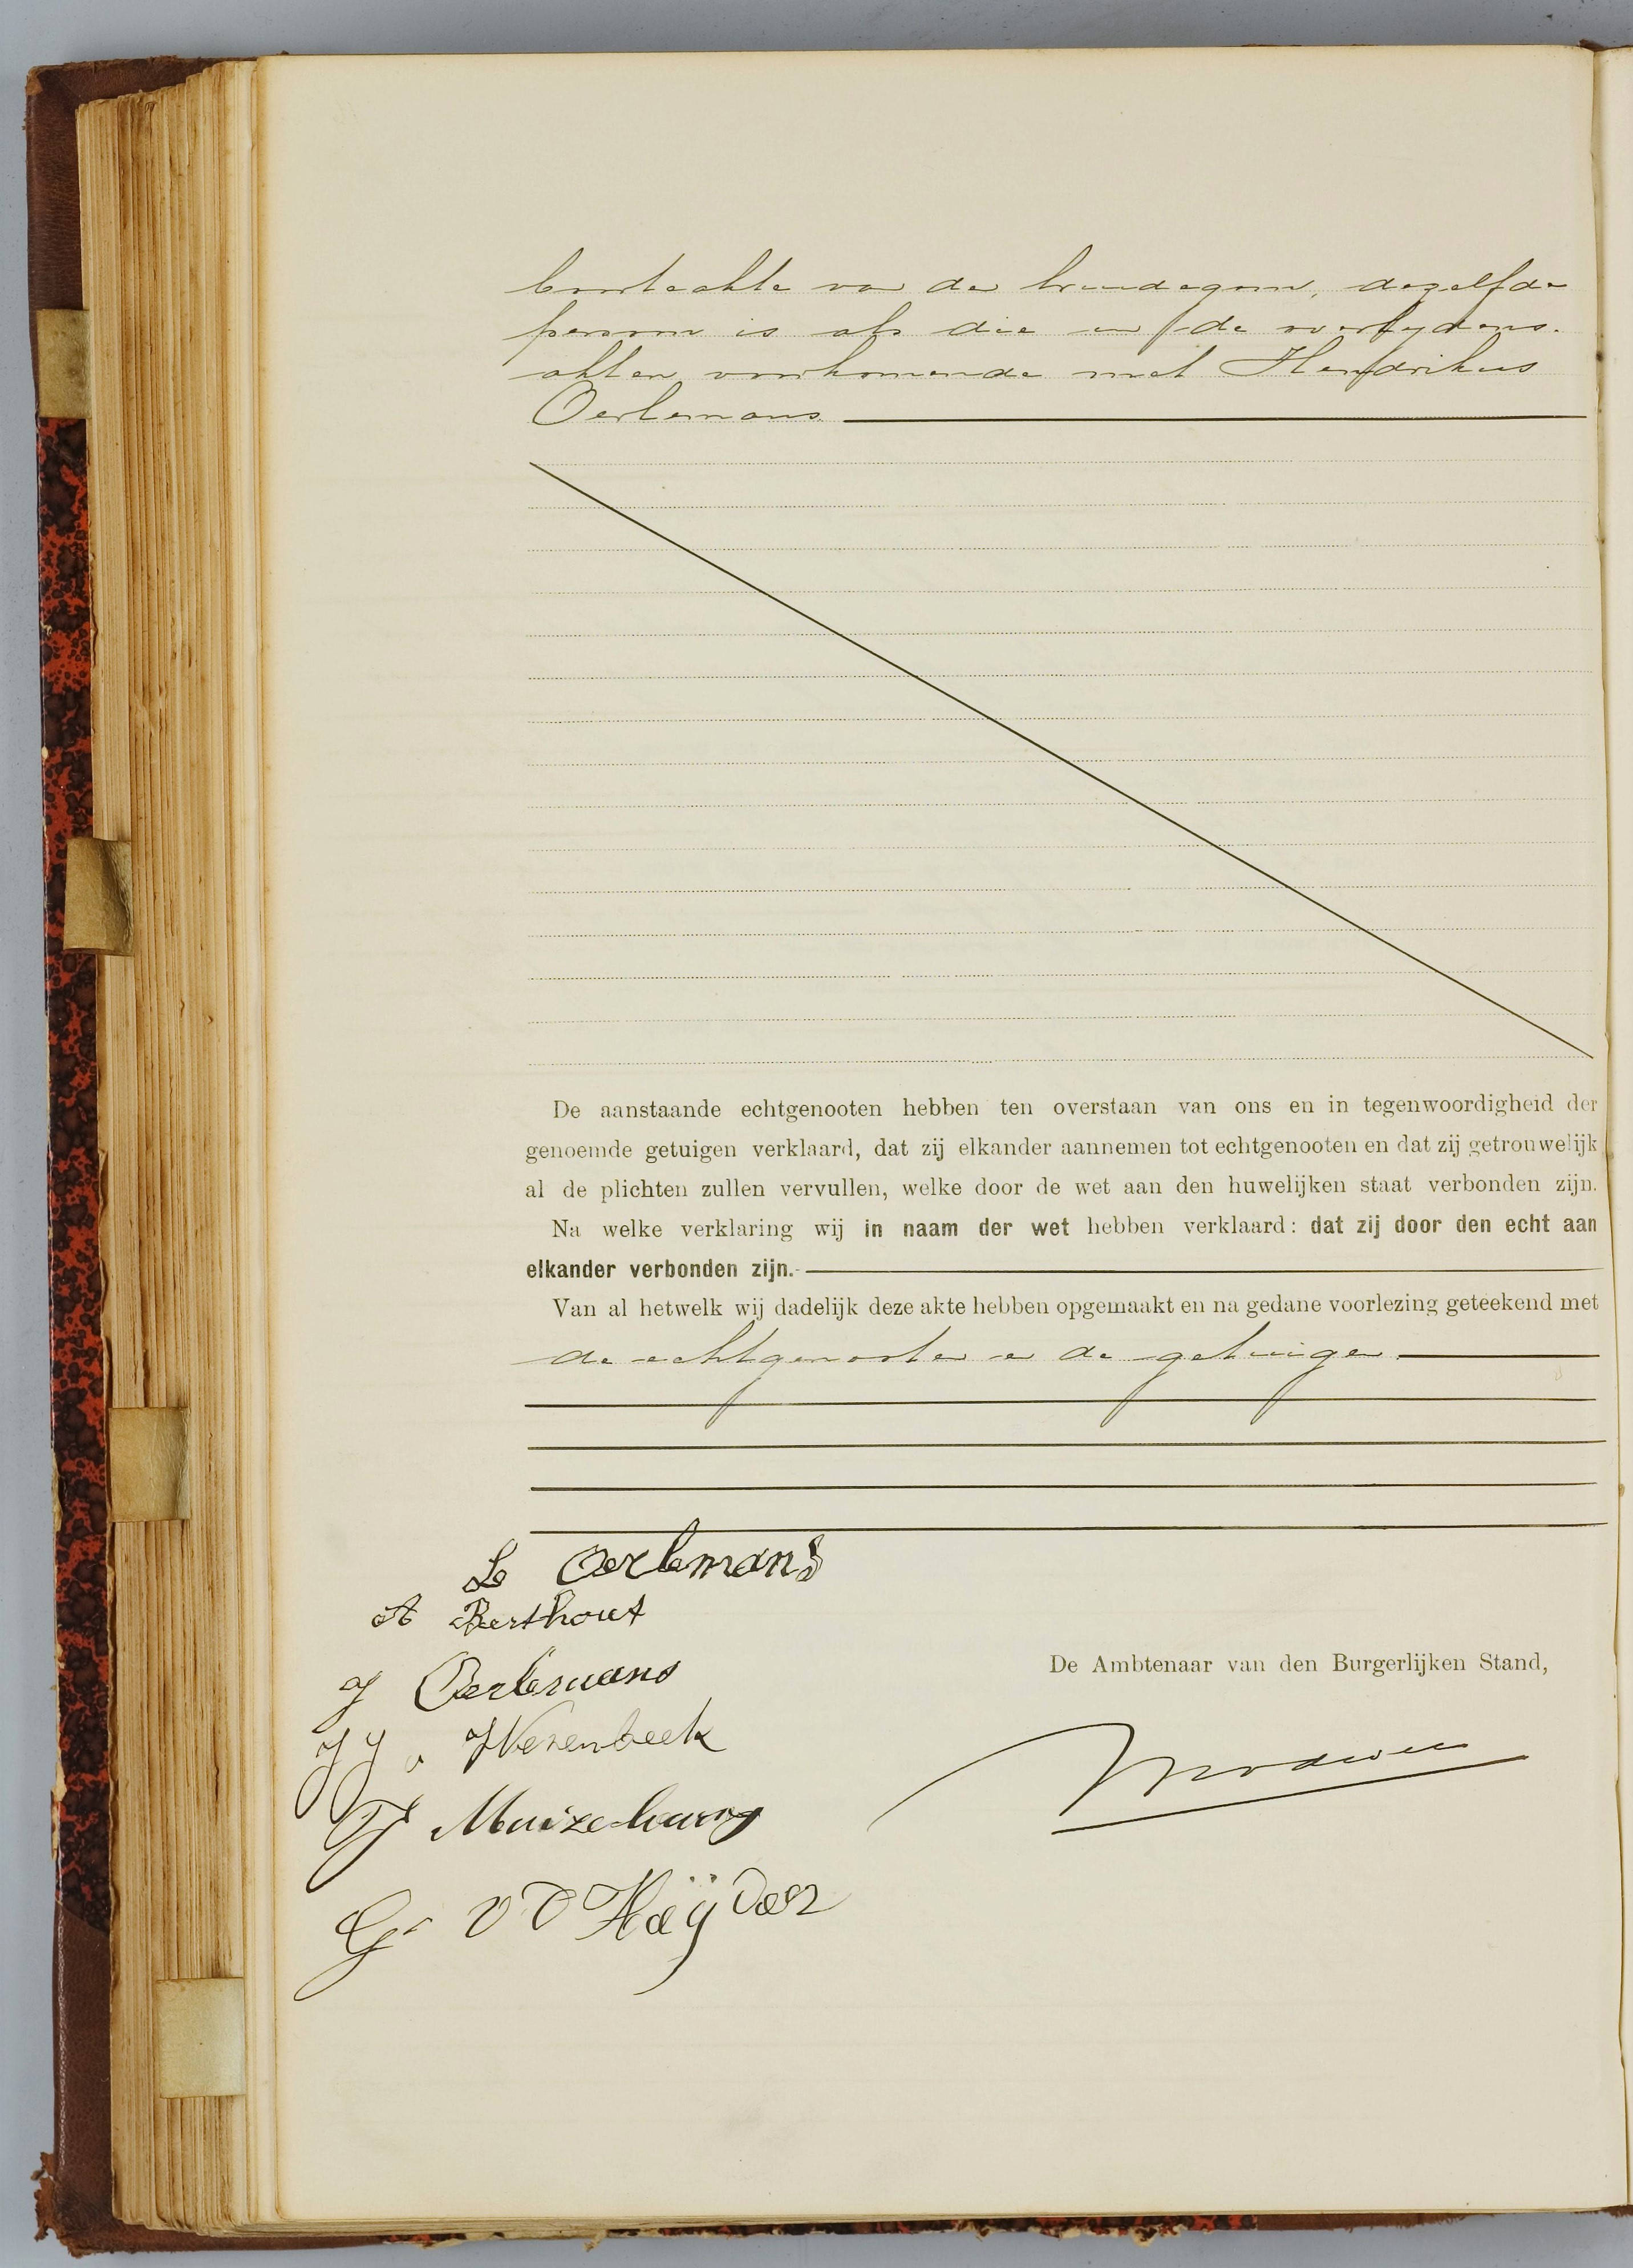 geboorteakte van den bruidegom, dezelfde
persoon is als die in de overlijdens-
akten voorkomende met Hendrikus
Oerlemans.
De aanstaande echtgenooten hebben ten overstaan van ons en in tegenwoordigheid der
genoemde getuigen verklaard, dat zij elkander aannemen tot echtgenooten en dat zij getrouwelijk
al de plichten zullen vervullen, welke door de wet aan den huwelijken staat verbonden zijn.
Na welke verklaring wij in naam der wet hebben verklaard: dat zij door den echt aan
elkander verbonden zijn.
Van al hetwelk wij dadelijk deze akte hebben opgemaakt en na gedane voorlezing geteekend met
de echtgenooten en de getuigen.
L Oerlemans
A Berthout
J Oerlemans
De Ambtenaar van den Burgerlijken Stand,
J J v Wezenbeek
Muizelaar
G V D Heÿden